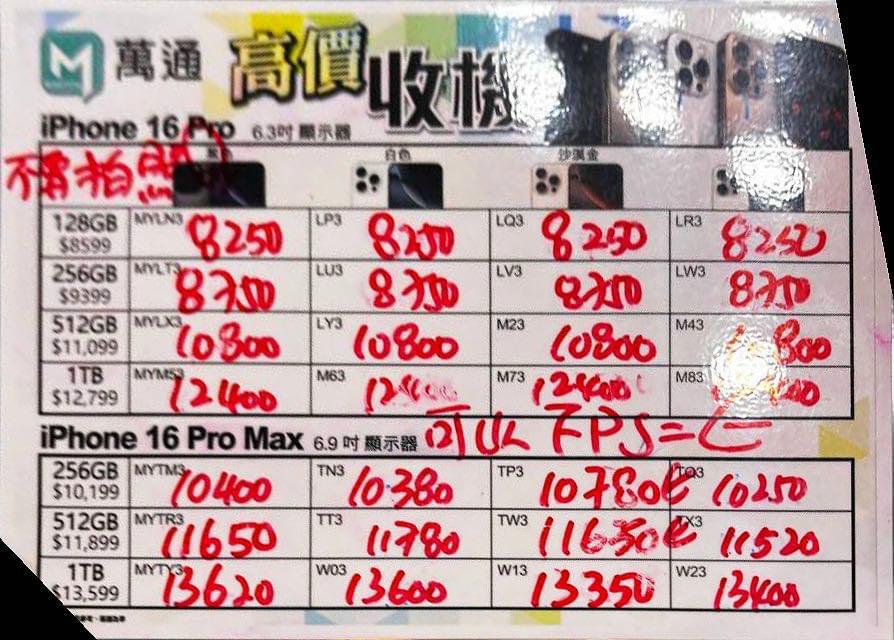 M 萬通 高價收機
iPhone 16 Pro 6.3吋 顯示器
不需拍照
白色 沙漠金
128GB MYLN3 8250 LP3 8250 LQ3 8250 LR3 8250
$8599
256GB MYLT3 8750 LU3 8750 LV3 8750 LW3 8750
$9399
512GB MYLX3 10800 LY3 10800 M23 10800 M43 800
$11,099
1TB MYM53 12400 M63 M73 12400 M83
$12,799
iPhone 16 Pro Max 6.9 吋 顯示器 可以 FPS=
256GB MYTM3 10400 TN3 10380 TP3 10780 TQ3 10250
$10,199
512GB MYTR3 11650 TT3 11780 TW3 11650 TX3 11520
$11,899
1TB MYTY3 13620 W03 13600 W13 13350 W23 13400
$13,599